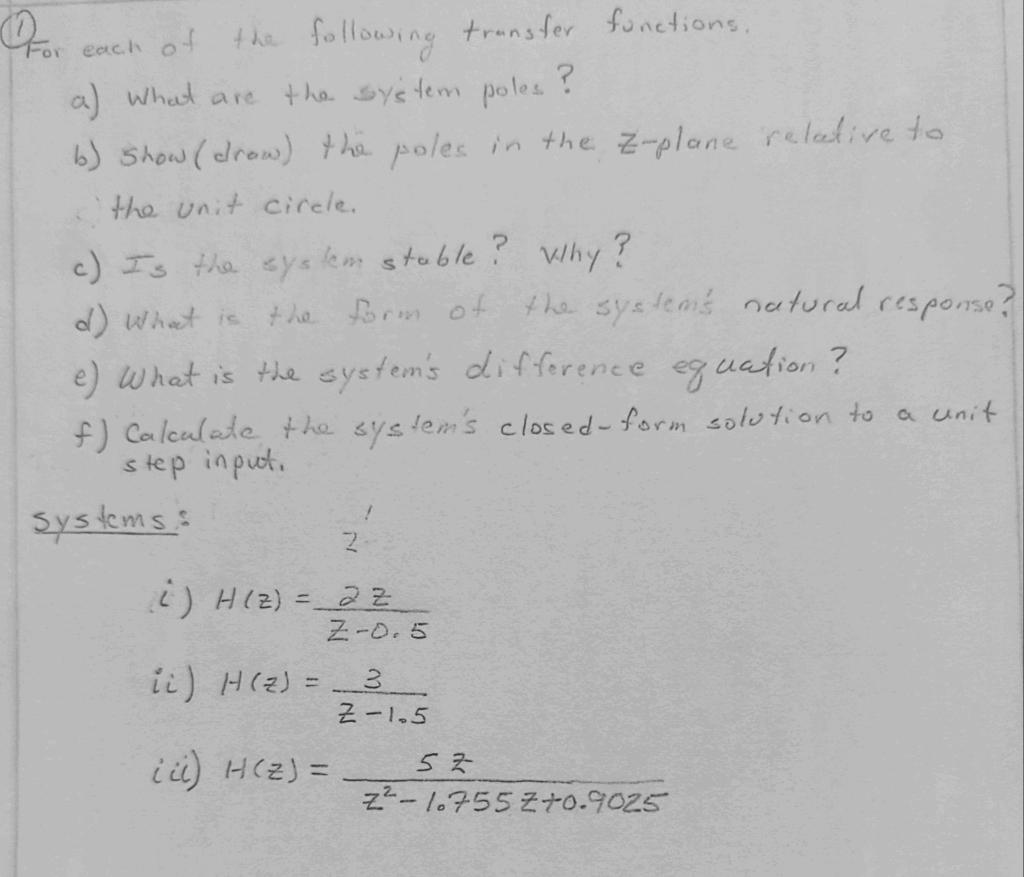 1) For each of the following transfer functions.
a) What are the system poles?
b) Show (draw) the poles in the Z-plane relative to
the unit circle.
c) Is the system stable? Why?
d) What is the form of the system's natural response?
e) What is the system's difference equation?
f) Calculate the system's closed-form solution to a unit
step input.
systems:
i) H(z) = 2z / z-0.5
ii) H(z) = 3 / z-1.5
iii) H(z) = 5z / z²-1.755z+0.9025